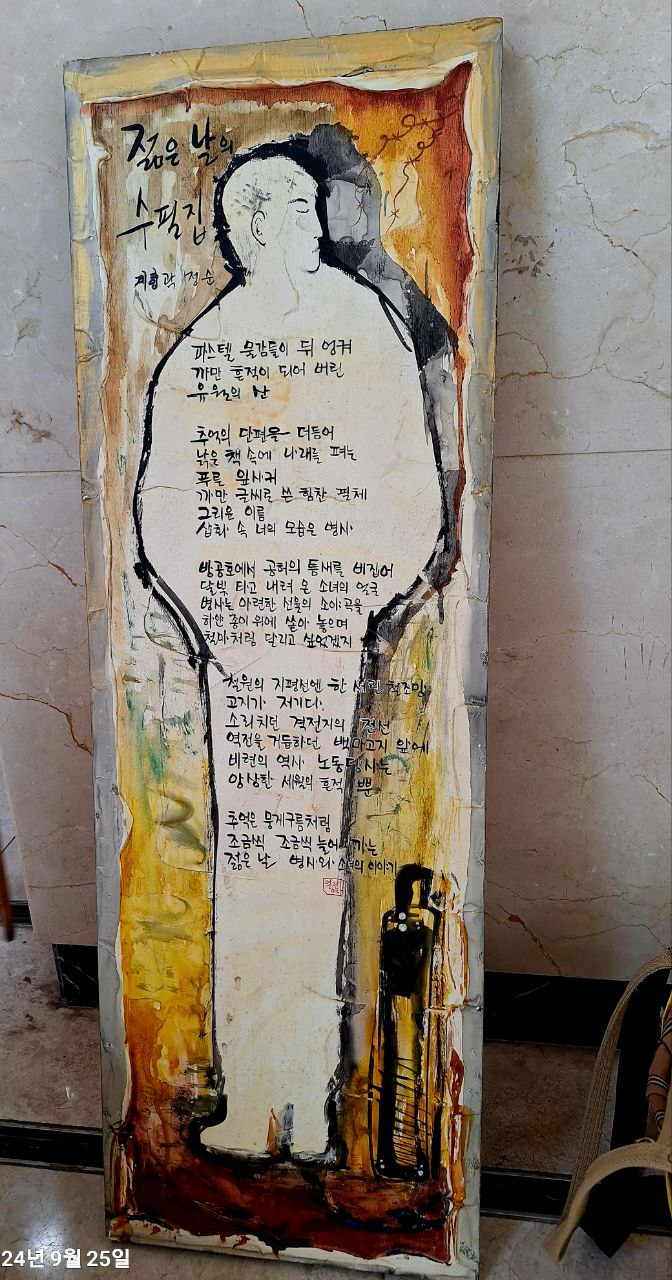 젊은 날의
수필집
곽정순
파스텔 물감들이 뒤 엉켜
까만 흔적이 되어 버린
유월의 난
추억의 단편을 더듬어
낡은 책 속에 나래를 펴는
푸른 잎사귀
까만 글씨로 쓴 힘찬 필체
그리운 이름
삽화 속 너의 모습은 병사
방공호에서 공허의 틈새를 비집어
달빛 타고 내려 온 소녀의 얼굴
병사는 아련한 선율의 소야곡을
하얀 종이 위에 쏟아 놓으며
철마처럼 달리고 싶었겠지
철원의 지평선엔 한 서린
고지가 저기다.
소리치던 격전지의 전선
역전을 거듭하던 백마고지 앞에
비련의 역사 노동당사는
앙상한 세월의 흔적 뿐
추억은 뭉게구름처럼
조금씩 조금씩 늘어 가는
젊은 날 병사와 소녀의 이야기
24년 9월 25일